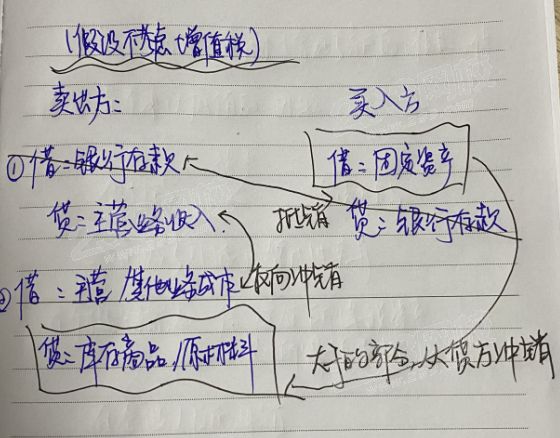 (假设不考虑增值税)
卖出方：
买入方
①借：银行存款
借：固定资产
贷：主营业务收入
抵销
贷：银行存款
②借：主营/其他业务成本
反向冲销
贷：库存商品/原材料
大于的部分，从贷方冲销